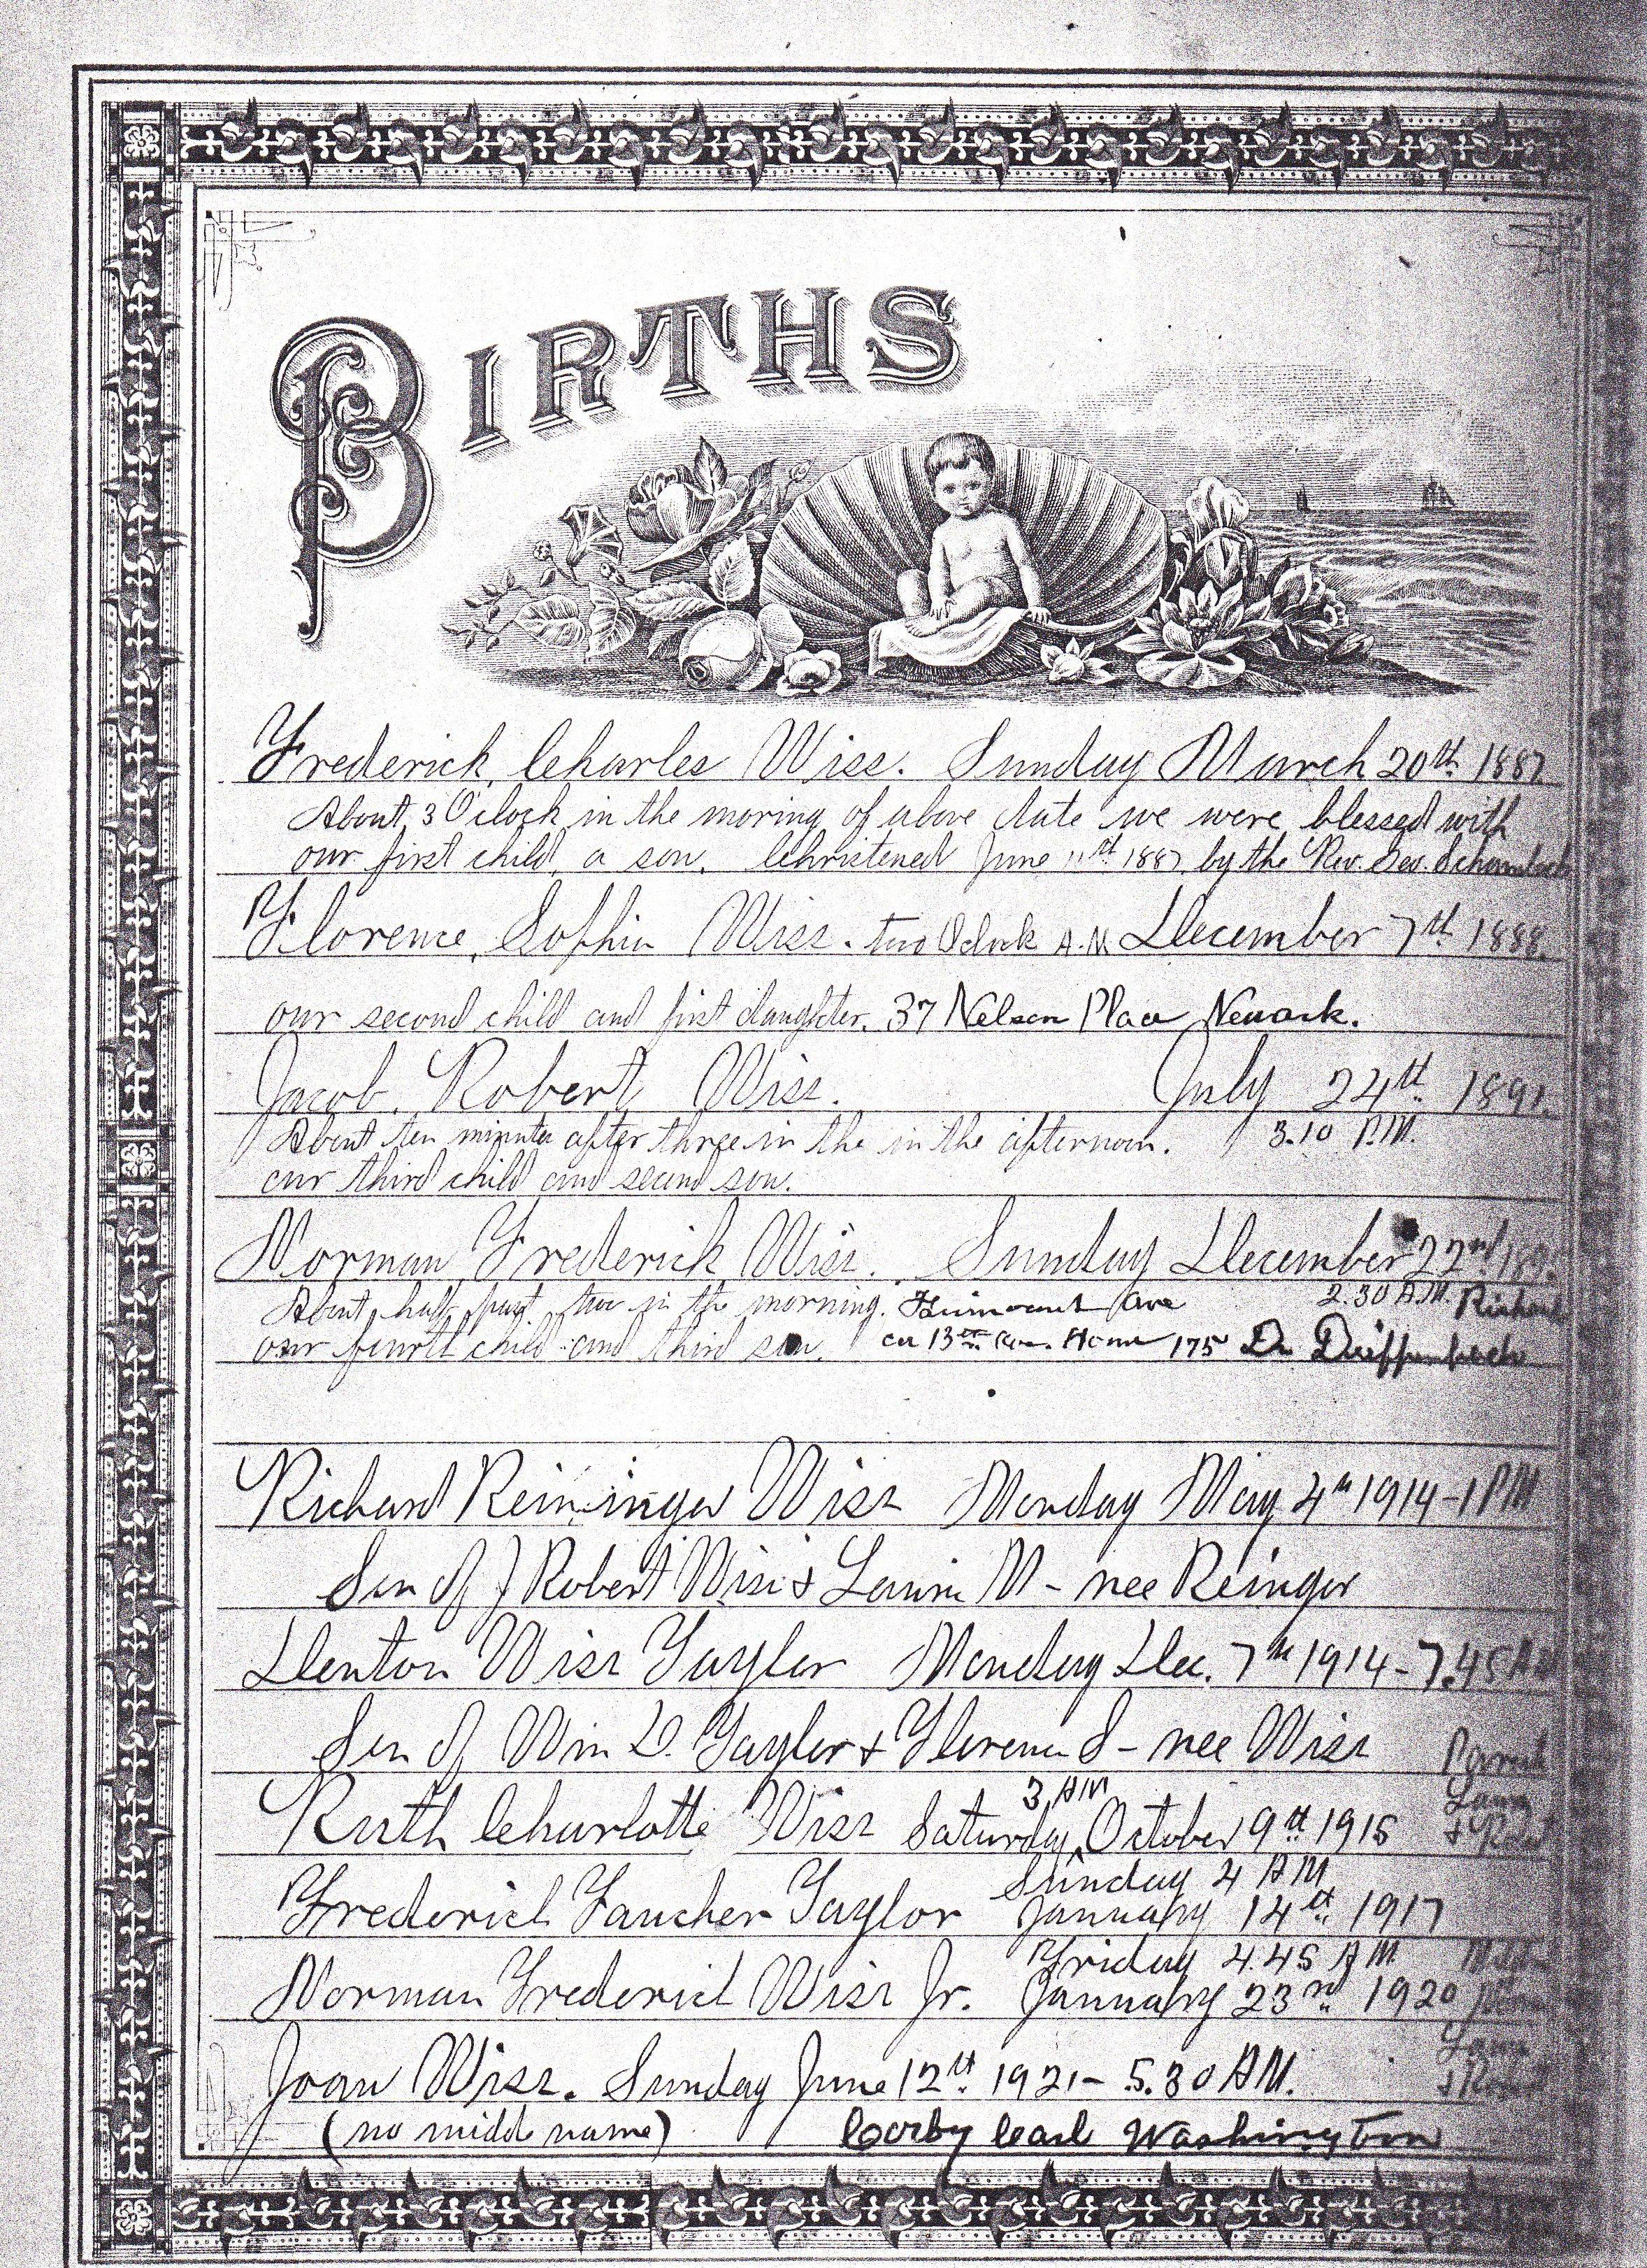 BIRTHS
Frederick Charles Wiss. Sunday March 20th 1887
About 3 O'clock in the moring of above date we were blessed with
our first child, a son. Christened June 11th 1887 by the Rev. Geo.
Florence, Sophia Wiss. two Oclock A.M. December 7th 1888.
our second child and first daughter. 37 Nelson Place Newark.
Jacob. Robert Wiss. July 24th 1891.
About ten minutes after three in the in the afternoon. 3.10 P.M.
our third child and second son.
Norman Frederick Wiss. Sunday December 22nd
About half past two in the morning. Ave 2.30 A.M.
our fourth child and third son. 13th Home 175 Dr.
Richard Reininger Wiss Monday May 4th 1914 - 1 PM
Son of J Robert Wiss & Laura M - nee Reinger
Denton Wiss Taylor Monday Dec. 7th 1914 - 7.45 AM
Son of Wm D. Taylor & Florence S - nee Wiss
Ruth Charlotte Wiss Saturday 3 AM October 9th 1915
Laura
& Robt
Sunday 4 AM
Frederick Faucher Taylor January 14th 1917
Friday 4.45 AM
Norman Frederick Wiss Jr. January 23rd 1920
Joan Wiss. Sunday June 12th 1921 - 5.30 AM.
Laura
(no middle name) Corby Earl Washington